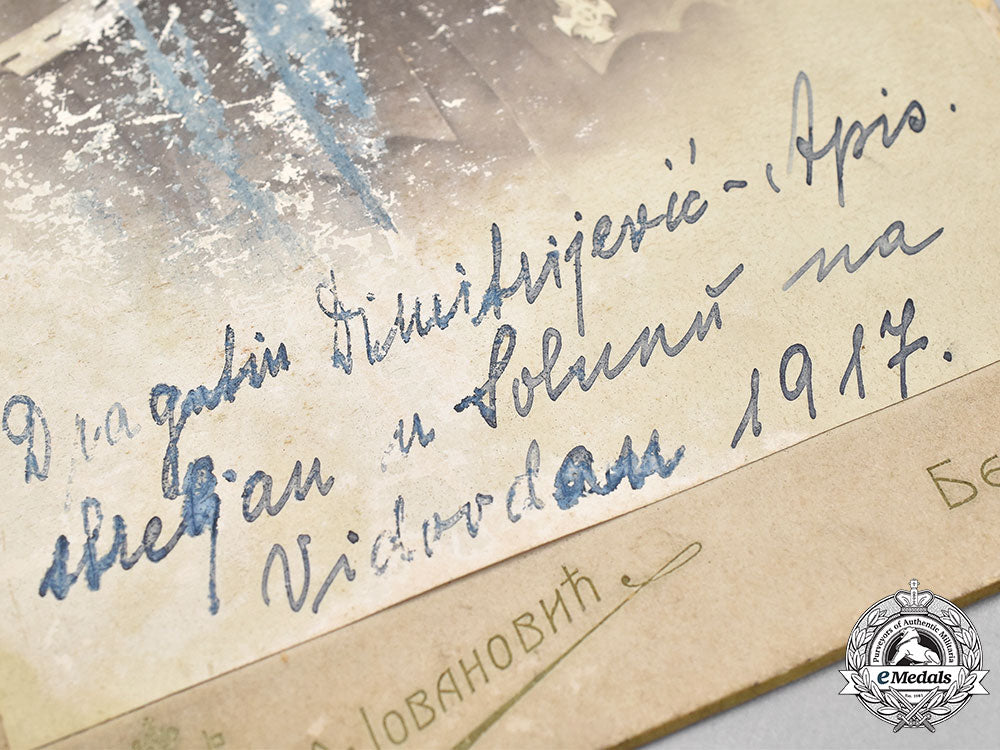 Dragutin Dimitrijević - Apis.
streljan u Solunu na
Vidovdan 1917.
ЈОВАНОВИЋ
Purveyors of Authentic Militaria
eMedals